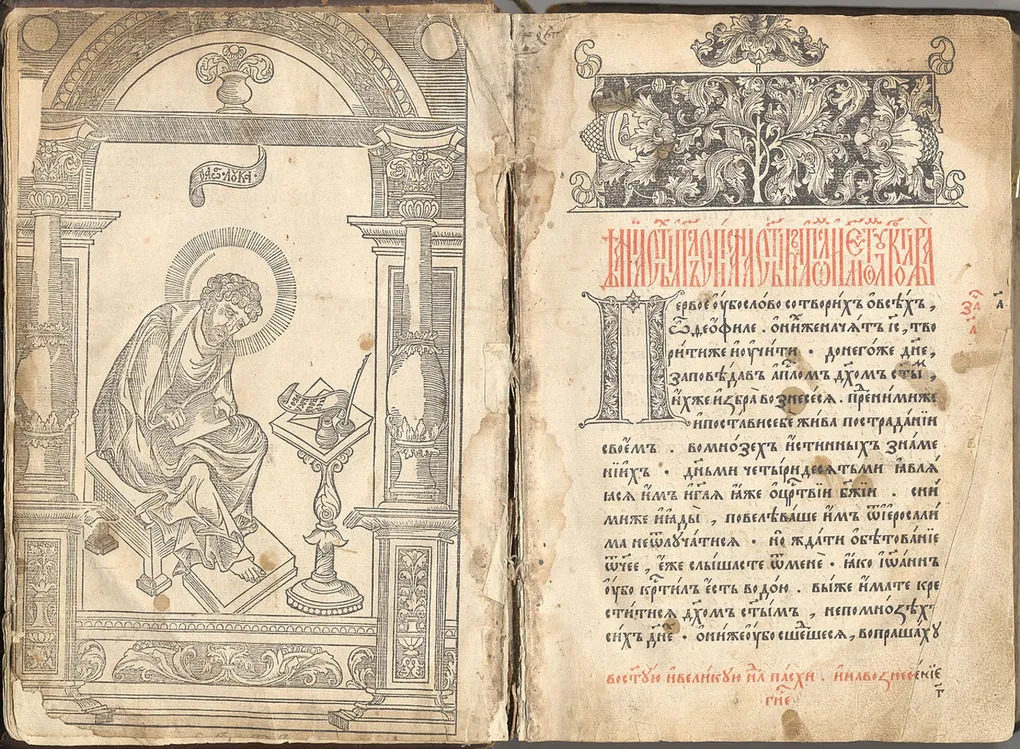 Первое ᲂу҆бо слово сотвори́хъ ѻ҆ всѣ́хъ ,
ѽ ѳео́филе . ѡ҆ ни́хже нача́тъ і҆с҃ , тво
ри́тиже и҆ ᲂу҆чи́ти . до него́же дн҃е ,
заповѣ́давъ а҆пⷭ҇ломъ дх҃омъ ст҃ы́м ,
и҆́хже и҆збра̀ вознесе́сѧ . пре ни́миже
и҆ поста́ви себѐ жи́ва по страда́нїи
свое́мъ . во мно́зехъ и҆́стинныхъ зна́ме
нїихъ . дн҃ьми четы́ридесѧтьми ꙗ҆влѧ́
ꙗсѧ и҆̀мъ и҆ г҃лѧ ꙗ҆́же ѡ҆ црⷭ҇твїи бж҃їи . с ни́
миже и҆ ꙗ҆ды̀ , повелѣва́ше и҆̀мъ ѿ і҆еросали́
ма не ѿлуча́тисѧ . но жда́ти ѡ҆бѣтова́нїе
ѻ҆́ч҃ее , є҆́же слы́шасте ѿ менѐ . ꙗ҆́ко і҆ѡа́ннъ
ᲂу҆́бо крⷭ҇ти́лъ є҆́сть водо́ю . вы́же и҆́мате кре
сти́тисѧ дх҃омъ ст҃ы́мъ , не по мно́зѣхъ
си́хъ дн҃е . ѻ҆ни́же ᲂу҆́бо сше́дшесѧ , вопраша́хꙋ
в ст҃ꙋ́ю и҆ вели́кꙋю нⷣлю па́схи . и҆ на вознесе́нїе
гн҃е